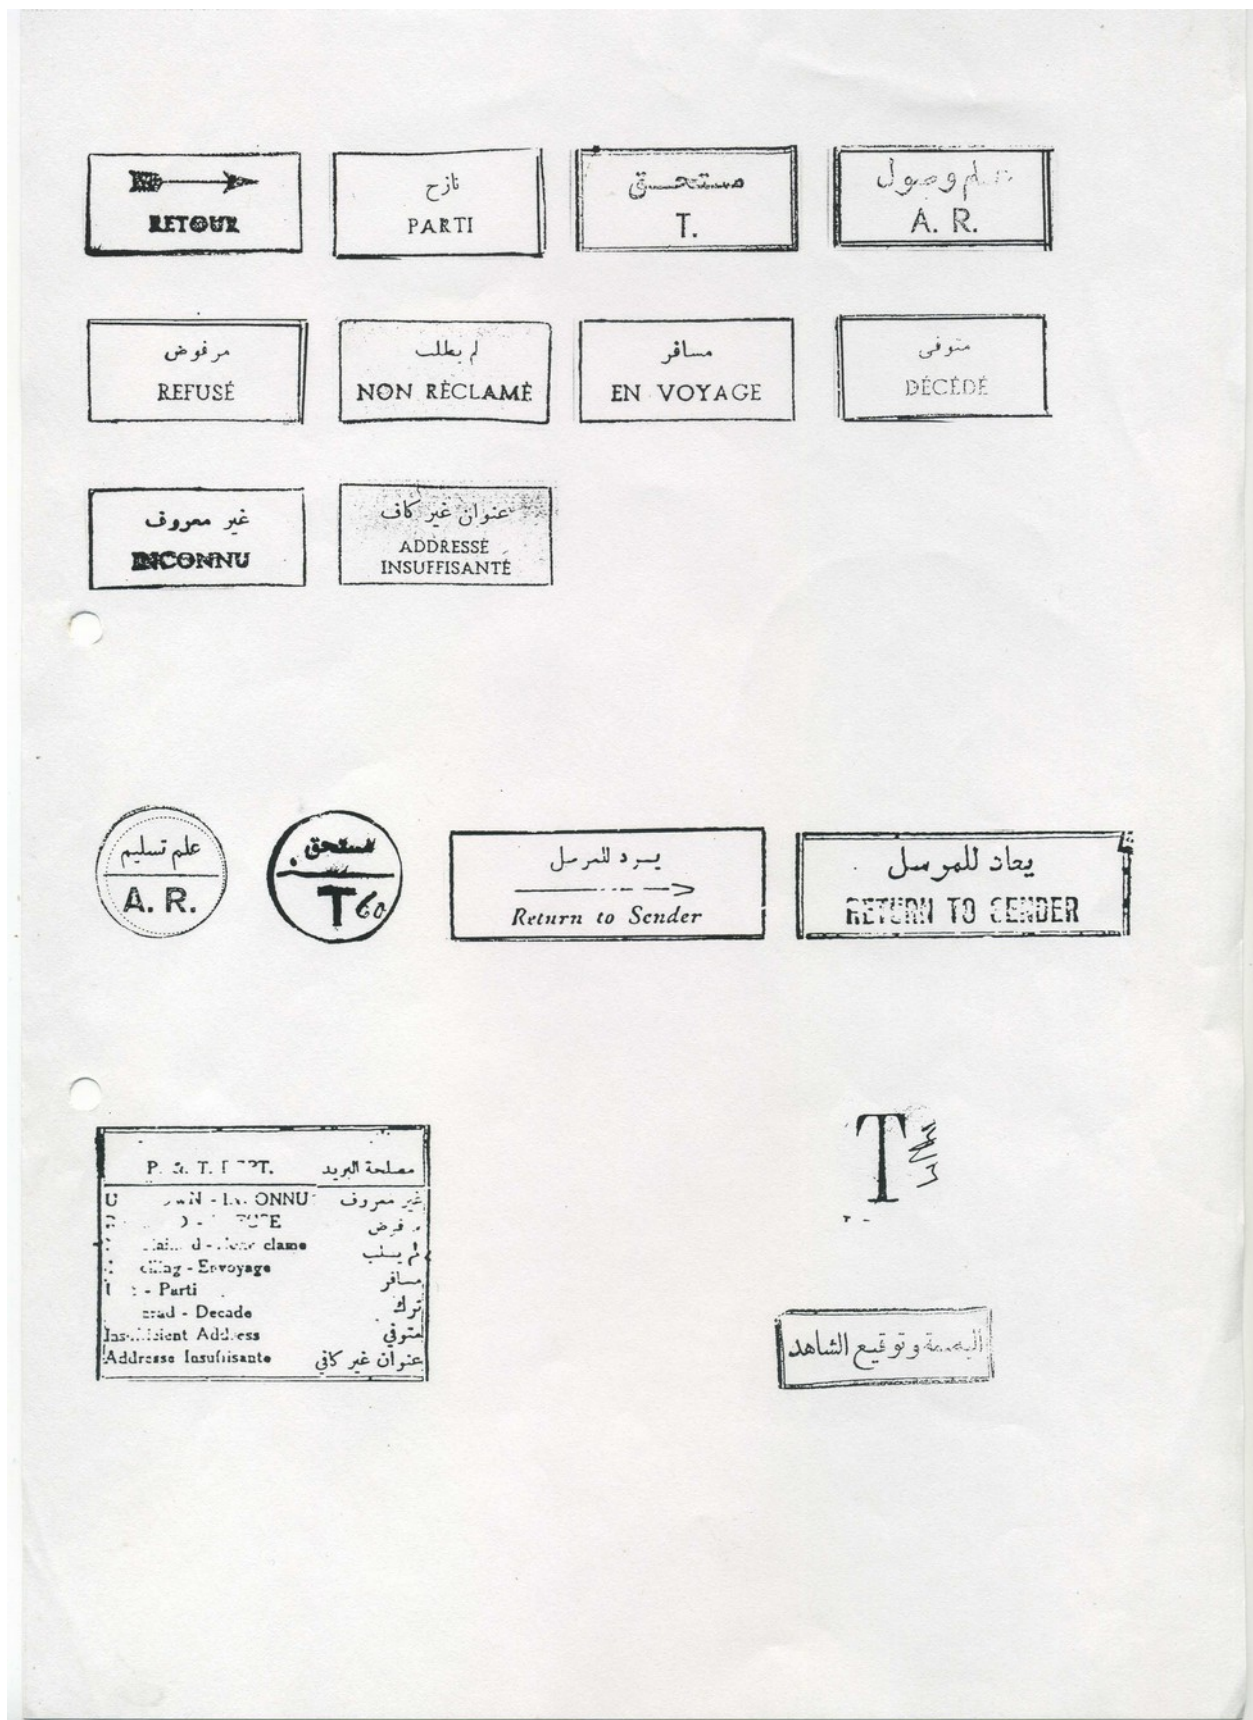 RETOUR
نازح
PARTI
مستحق
T.
وصول
A. R.
مرفوض
REFUSÉ
لم يطلب
NON RÉCLAMÉ
مسافر
EN VOYAGE
متوفى
DÉCÉDÉ
غير معروف
INCONNU
عنوان غير كاف
ADDRESSÉ
INSUFFISANTÉ
علم تسليم
A. R.
مستحق
T 60
يرد للمرسل
Return to Sender
يعاد للمرسل
RETURN TO SENDER
مصلحة البريد
غير معروف
clame
Envoyage مسافر
- Parti ترك
- Decade متوفي
Address
Addresse Insuffisante عنوان غير كافي
T
البصمة وتوقيع الشاهد